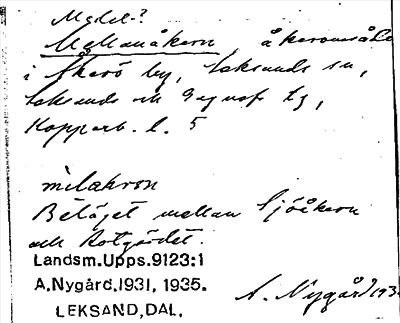 Medel-?
Mellanåkern, åkerområde
i Åkerö by, Leksands sn,
Leksands och Gagnefs tg,
Kopparb. l. 5
milakron
Beläget mellan Sjöåkern
och Rotgärdet.
Landsm.Upps.9123:1
A.Nygård.1931, 1935.
A. Nygård 193
LEKSAND, DAL.